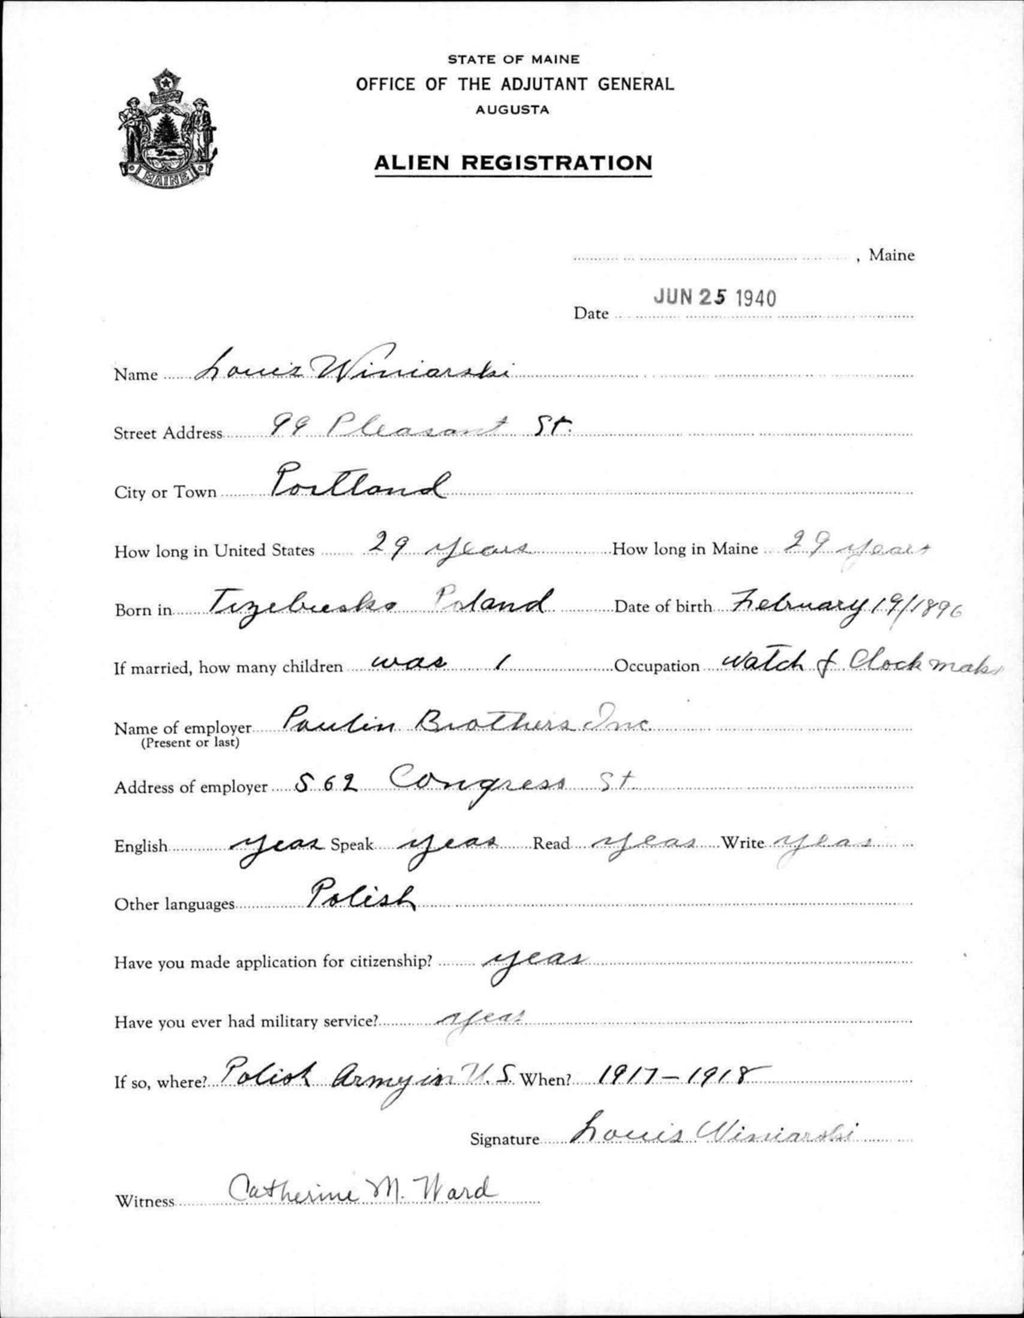 STATE OF MAINE
OFFICE OF THE ADJUTANT GENERAL
AUGUSTA
ALIEN REGISTRATION
MAINE
, Maine
Date JUN 25 1940
Name Louis Winiarski
Street Address 99 Pleasant St.
City or Town Portland
How long in United States 29 years How long in Maine 29 years
Born in Poland Date of birth February 19/1896
If married, how many children was 1 Occupation Watch & Clock mak
Name of employer Paulin Brothers Inc
(Present or last)
Address of employer 562 Congress St.
English yeas Speak yeas Read yeas Write yeas
Other languages Polish
Have you made application for citizenship? yeas
Have you ever had military service? yeas
If so, where? Polish Army in U.S. When? 1917-1918
Signature Louis Winiarski
Witness Catherine M. Ward